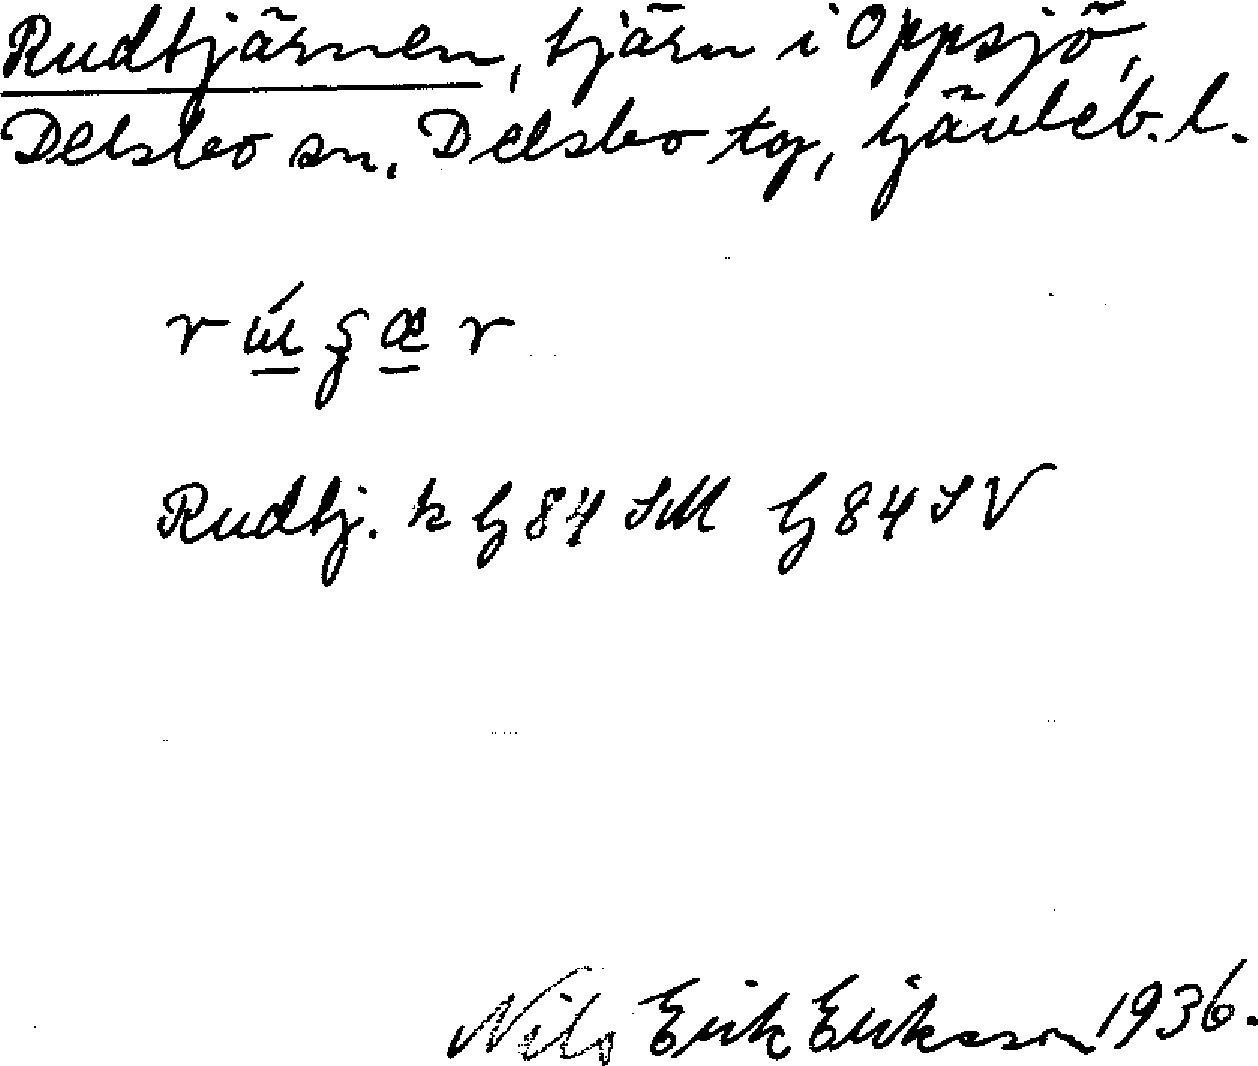 Rudtjärnen, tjärn i Oppsjö,
Delsbo sn. Delsbo tg, Gävleb. l.
Rudtj. k G 84 SM G 84 SV
Nils Erik Eriksson 1936.